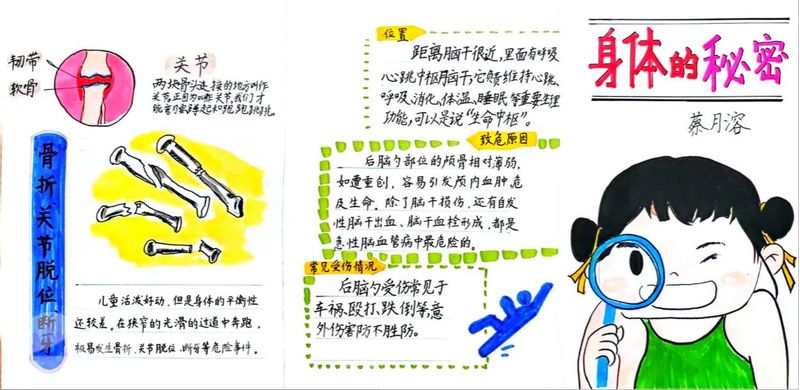 韧带
软骨
关节
两块骨头连接的地方叫作
关节,正因为有关节,我们才
能弯曲
和跑跑跳跳。
骨折、关节脱位、断牙
儿童活泼好动,但是身体的平衡性
还较差。在狭窄的光滑的过道中奔跑,
极易发生骨折、关节脱位、断牙等危险事件。
位置
距离脑干很近,里面有呼吸
心跳中枢脑干,它能维持心跳、
呼吸、消化、体温、睡眠等重要生理
功能,可以是说“生命中枢”。
致危原因
后脑勺部位的颅骨相对薄弱,
如遭重创,容易引发颅内血肿,危
及生命。除了脑干损伤,还有自发
性脑干出血、脑干血栓形成,都是
急性脑血管病中最危险的。
常见受伤情况
后脑勺受伤常见于
车祸、殴打、跌倒等,意
外伤害防不胜防。
身体的秘密
蔡月溶